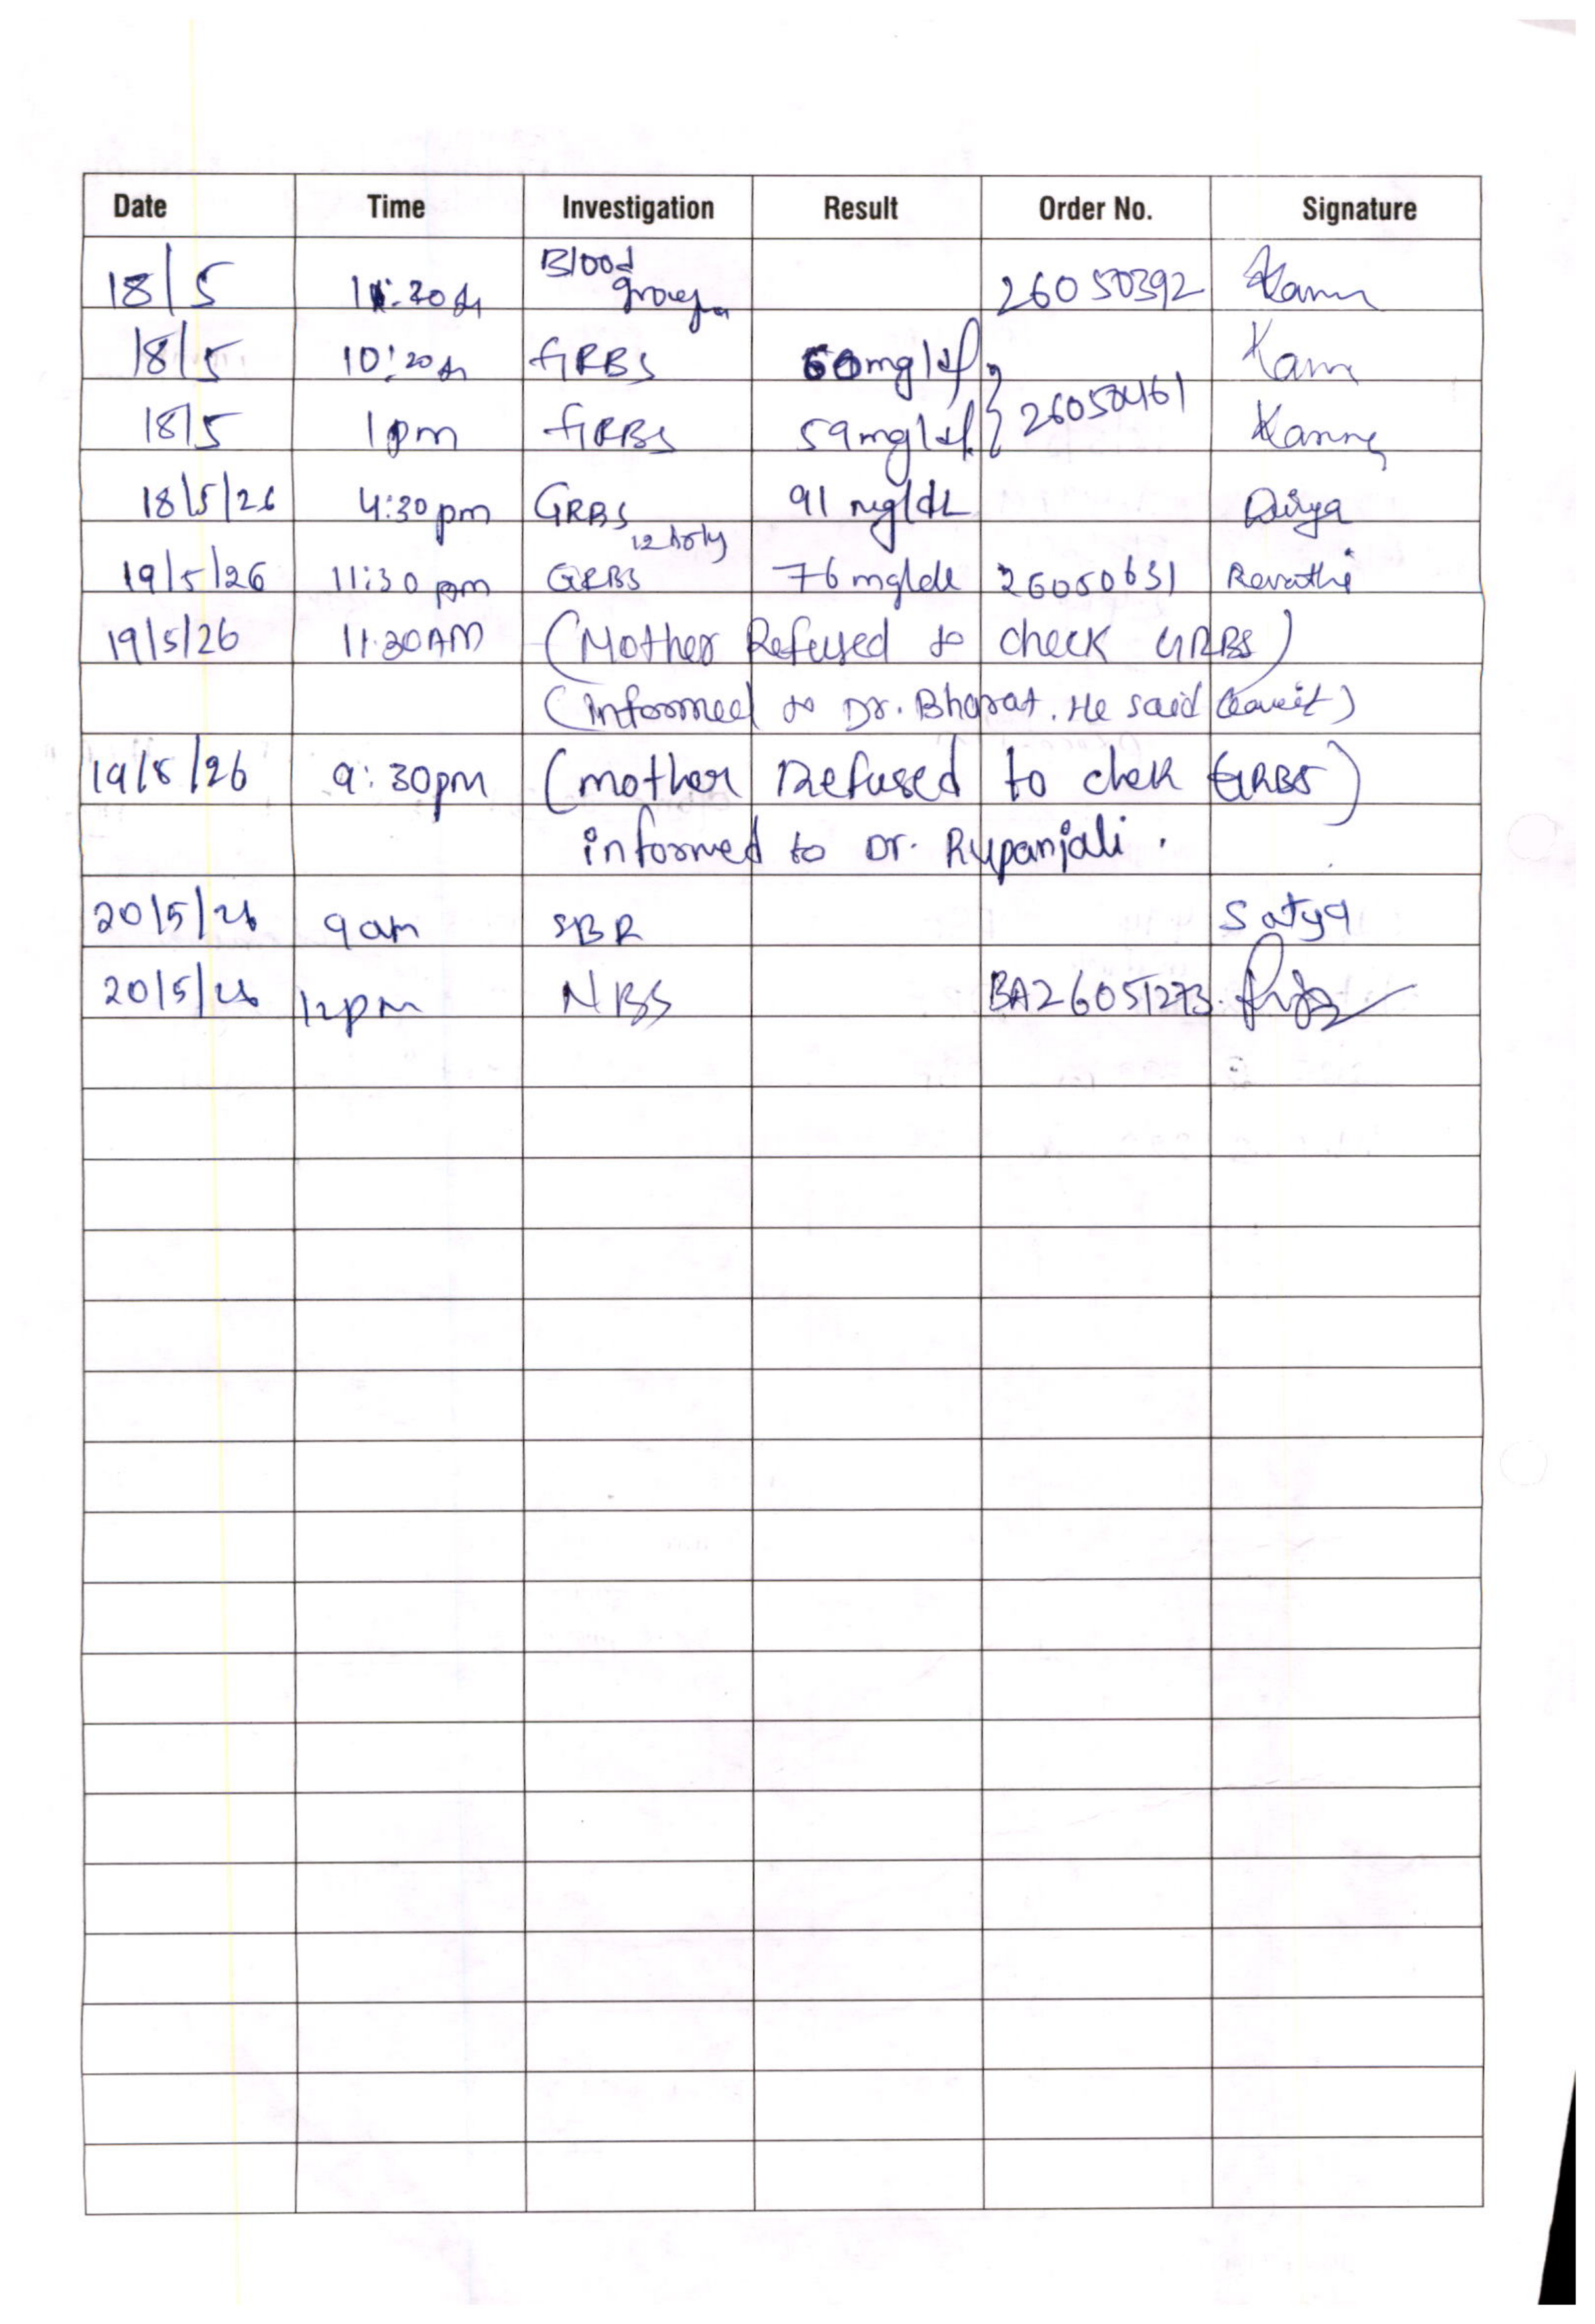 Date Time Investigation Result Order No. Signature
18/5 Blood group 26050392
18/5 10:20 GRBS 60mg/dl
18/5 1pm GRBS 59mg/dl 26050461
18/5/26 4:30pm GRBS 91 mg/dL Divya
12 hrly
19/5/26 11:30 pm GRBS 76 mg/dl 26050631 Revathi
19/5/26 11:30AM (Mother Refused to check GRBS)
(Informed to Dr. Bharat. He said leave it)
19/5/26 9:30pm (mother Refused to chek GRBS)
informed to Dr. Rupanjali.
20/5/26 9am SBR Satya
20/5/26 12pm NBS BA26051273.